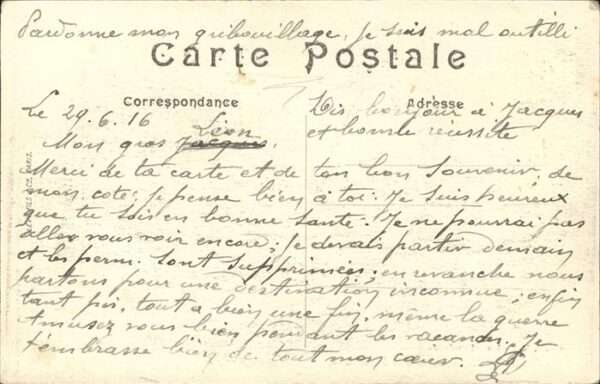 Pardonne mon gribouillage, je suis mal outillé
Carte Postale
Correspondance
Adresse
Le 29.6.16
Mon gros Jacques Léon,
Dis bonjour à Jacques
et bonne réussite
Merci de ta carte et de ton bon souvenir, de
mon coté; je pense bien à toi. Je suis heureux
que tu sois en bonne santé. Je ne pourrai pas
aller vous voir encore; je devais partir demain
et les perm. sont supprimées; en revanche nous
partons pour une destination inconnue; enfin
tant pis, tout a bien une fin, même la guerre
Amusez vous bien pendant les vacances. Je
t'embrasse bien de tout mon cœur.